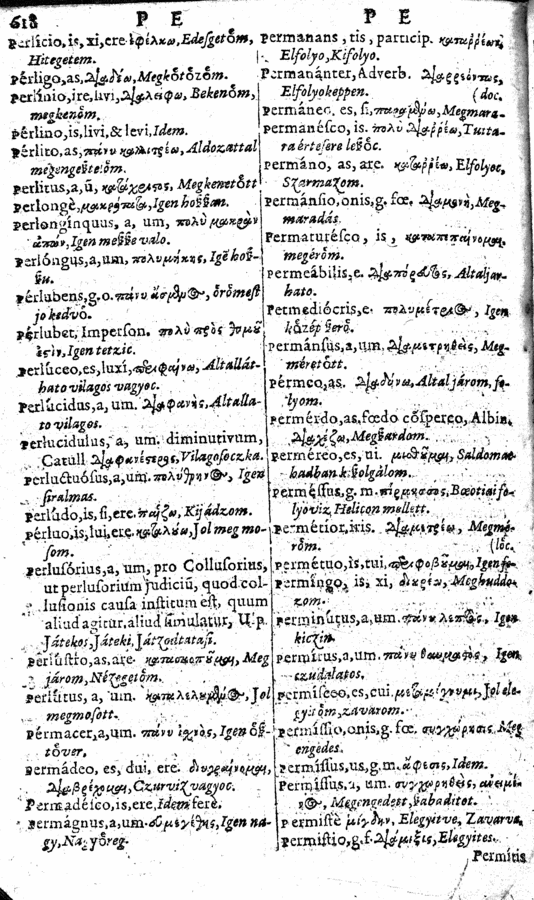 618 P E P E
Perlicio, is, xi, ere ἐφέλκω, Edesgetȍm,
Hitegetem.
Perligo, as, Megkȍtȍzȍm.
Perlinio, ire, livi, διαλείφω, Bekenȍm,
megkenȍm.
Pérlino, is, livi, & levi, Idem.
Perlito, as, Aldozattal
Perlitus, a, ũ, Megkenetȍtt
Perlongè, Igen hoßßan.
Perlonginquus, a, um, πολὺ μακρὰν
ἀπὼν, Igen meßße valo.
Perlóngus, a, um, πολυμήκης, Igẽ hoß-
ßu.
Pérlubens, g. o. ȍrȍmest
jo kedvő.
Pérlubet, Imperson. πολὺ πρὸς θυμοῦ
ἐςὶν, Igen tetzic.
Perlúceo, es, luxi, διαφαίνω, Altallát-
hato vilagos vagyoc.
Perlúcidus, a, um. διαφανὴς, Altalla-
to vilagos.
Perlucidulus, a, um. diminutivum,
Catull. διαφανέςερος, Vilagosoczka.
Perluctuósus, a, um. Igen
siralmas.
Perlúdo, is, si, ere. παίζω, Kijádzom.
Perluo, is, lui, ere. Jol meg mo-
som.
Perlusórius, a, um, pro Collusorius,
ut perlusorium judiciũ, quod col-
lusionis causa institum est, quum
aliud agitur, aliud simulatur, Ulp.
Játekos, Játeki, Játzodtatasi.
Perlustro, as, are. κατασκοποῦμαι, Meg
járom, Nézegetȍm.
Perlútus, a, um. Jol
megmosott.
Pérmacer, a, um. πάνυ ἰχνὸς, Igen ȍß-
tȍver.
Permádeo, es, dui, ere. διυγραίνομαι,
διαβρέχομαι, Czurviz vagyoc.
Permadésco, is, ere, Idem ferè.
Permágnus, a, um. Igen na-
gy, Nagyȍreg.
Permanans, tis, particip. καταῤῥέων,
Elfolyo, Kifolyo.
Permanánter, Adverb. διαῤῥέοντως,
Elfolyokeppen. (doc.
Permáneo, es, si, Megmara-
Permanésco, is. πολὺ διαῤῥέω, Tutta-
ra értesere leßȍc.
Permáno, as, are. καταῤῥέω, Elfolyoc,
Szarmazom.
Permánsio, onis, g. fœ. διαμονὴ, Meg-
maradás.
Permaturésco, is, καταπεπαίνομαι,
megérȍm.
Permeábilis, e. Altaljar-
hato.
Permediócris, e. Igen
kȍzép ßerű.
Permánsus, a, um. διαμετρηθεὶς, Meg-
méretȍtt.
Pérmeo, as. διαδύνω, Altal járom, fo-
lyom.
Permérdo, as, fœdo cõsperco, Albin.
διαχέζω, Megßardom.
Permereo, es, ui. Saldomas-
hadban kßolgálom.
Permessus, g. m. Bœotiai fo-
lyoviz, Helicon mellett.
Permétior, iris. διαμετρέω, Megmé-
rȍm. (lȍc.
Permétuo, is, cui, Igen fe-
Permíngo, is, xi, Meghuddo-
zom.
Perminútus, a, um. πάνυ λεπτὸς, Igen
kiczin.
Permirus, a, um. πάνυ θαυμαςὸς, Igen
czudalatos.
Permísceo, es, cui. Jol ele-
gyitȍm, zavarom.
Permíssio, onis, g. fœ. συγχώρησις, Meg
engedes.
Permissus, us, g. m. ἄφεσις, Idem.
Permíssus, a, um. συγχωρηθεὶς,
Megengedett, ßabaditot.
Permistè μίγδην, Elegyitve, Zavarva.
Permistio, g. f. διάμιξις, Elegyites.
Permitis